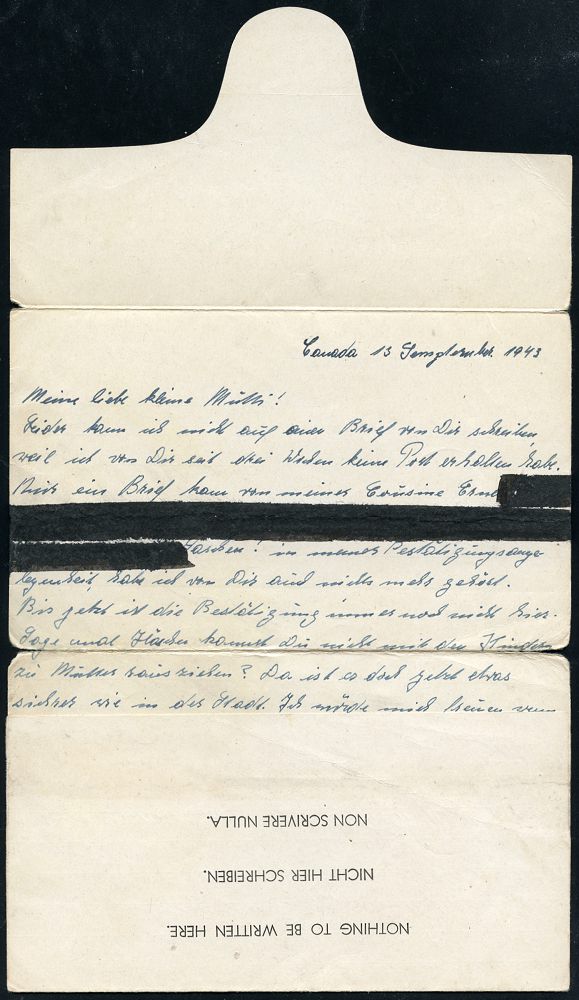 Canada 13 Semptember. 1943
Meine liebe kleine Mutti!
Leider kann ich nicht auf einen Brief von Dir schreiben,
weil ich von Dir seit drei Wochen keine Post erhalten habe.
Nur ein Brief kam von meiner Cousine
! in meiner Bestätigungsange-
legenheit, habe ich von Dir auch nichts mehr gehört.
Bis jetzt ist die Bestätigung immer noch nicht hier.
Sage mal Häschen kannst Du nicht mit den Kindern
zu Mutter rausziehen? Da ist es doch jetzt etwas
sicherer wie in der Stadt. Ich würde mich freuen wenn
NON SCRIVERE NULLA.
NICHT HIER SCHREIBEN.
NOTHING TO BE WRITTEN HERE.